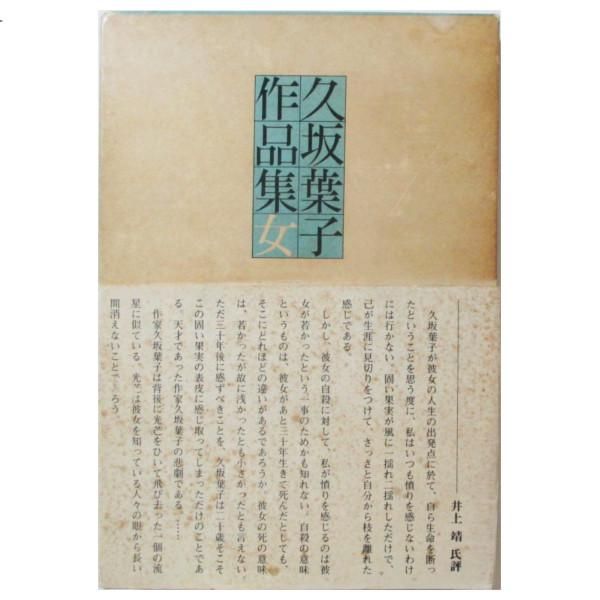 久坂葉子
作品集女
井上 靖 氏評
久坂葉子が彼女の人生の出発点に於て、自ら生命を断っ
たということを思う度に、私はいつも憤りを感じないわけ
には行かない。固い果実が風に一揺れ二揺れしただけで、
己が生涯に見切りをつけて、さっさと自分から枝を離れた
感じである。
しかし、彼女の自殺に対して、私が憤りを感じるのは彼
女が若かったという一事のためかも知れない。自殺の意味
というものは、彼女があと三十年生きて死んだとしても、
そこにどれほどの違いがあるであろうか。彼女の死の意味
は、若かったが故に浅かったとも小さかったとも言えない。
ただ三十年後に感ずべきことを、久坂葉子は二十歳そこそ
この固い果実の表皮に感じ取ってしまっただけのことであ
る。天才であった作家久坂葉子の悲劇である。……
作家久坂葉子は背後に光芒をひいて飛び去った一個の流
星に似ている。光芒は彼女を知っている人々の眼から長い
間消えないこと ろう